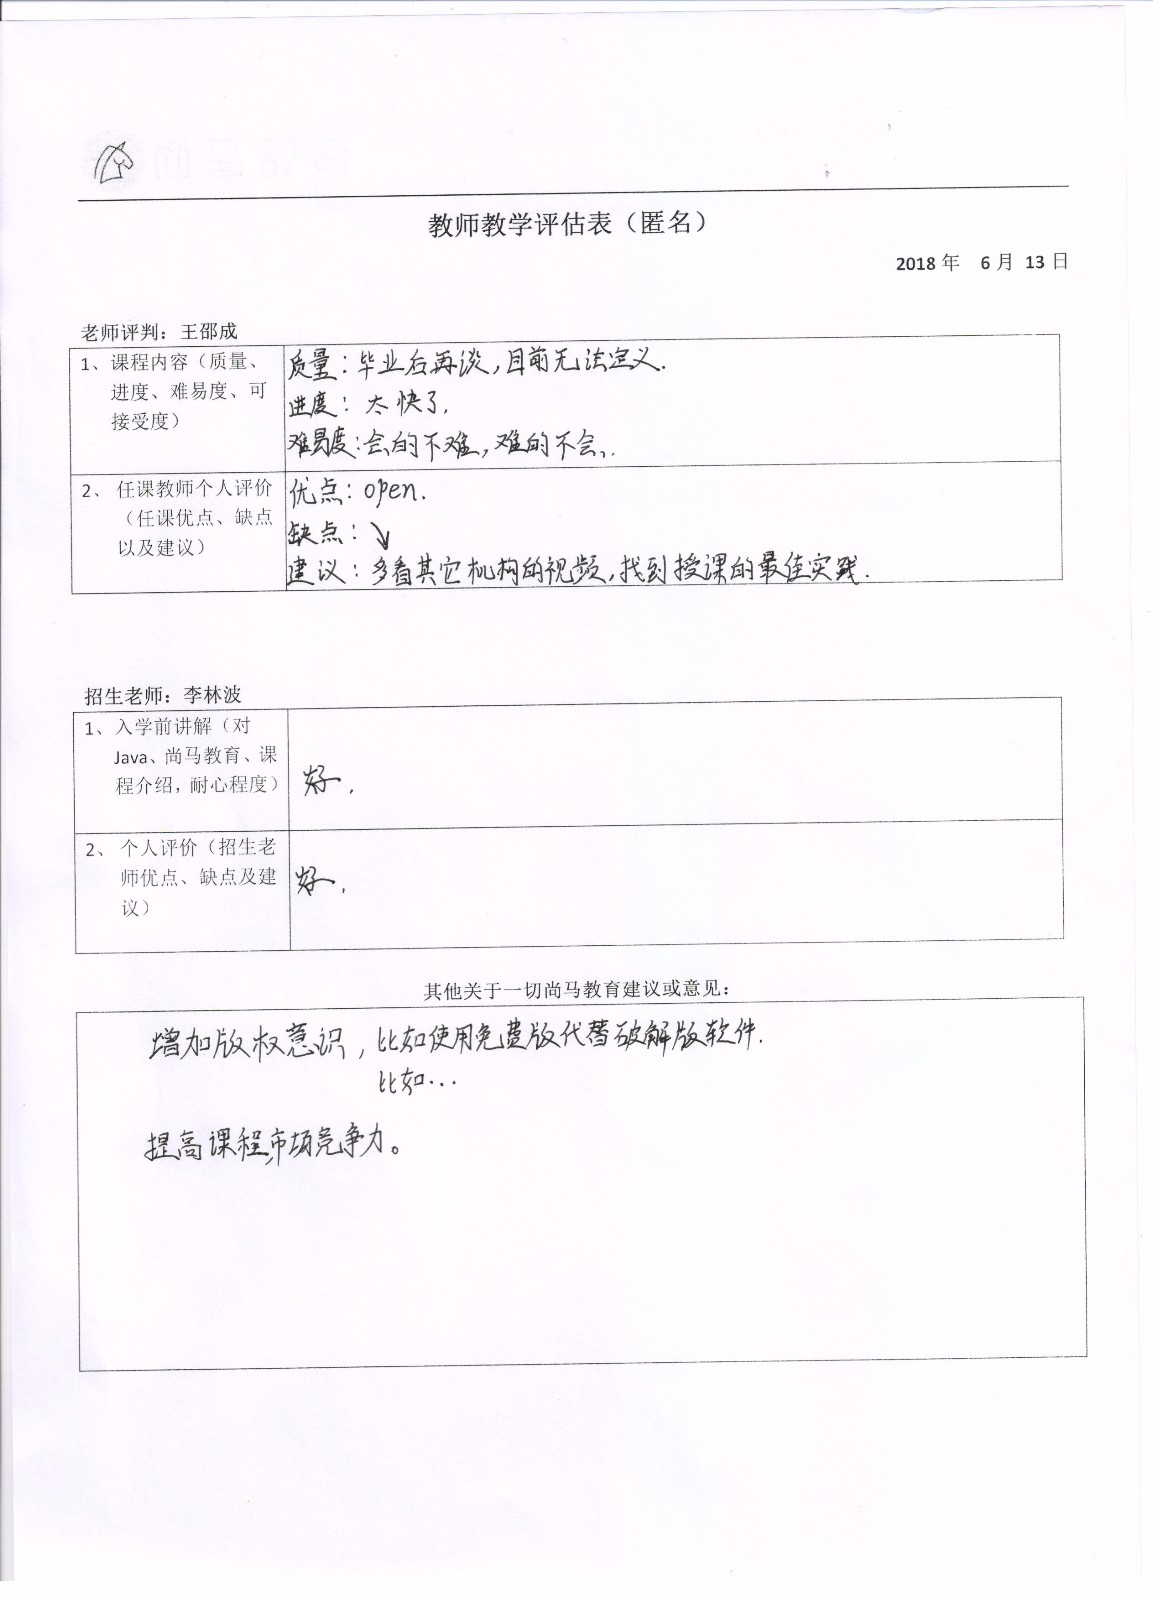 教师教学评估表（匿名）
2018 年 6 月 13 日
老师评判：王邵成
1、课程内容（质量、
进度、难易度、可
接受度）
质量：毕业后再谈，目前无法定义.
进度：太快了.
难易度：会的不难，难的不会.
2、任课教师个人评价
（任课优点、缺点
以及建议）
优点：open.
缺点：↘
建议：多看其它机构的视频，找到授课的最佳实践.
招生老师：李林波
1、入学前讲解（对
Java、尚马教育、课
程介绍，耐心程度）
好.
2、个人评价（招生老
师优点、缺点及建
议）
好.
其他关于一切尚马教育建议或意见：
增加版权意识，比如使用免费版代替破解版软件.
比如...
提高课程市场竞争力。